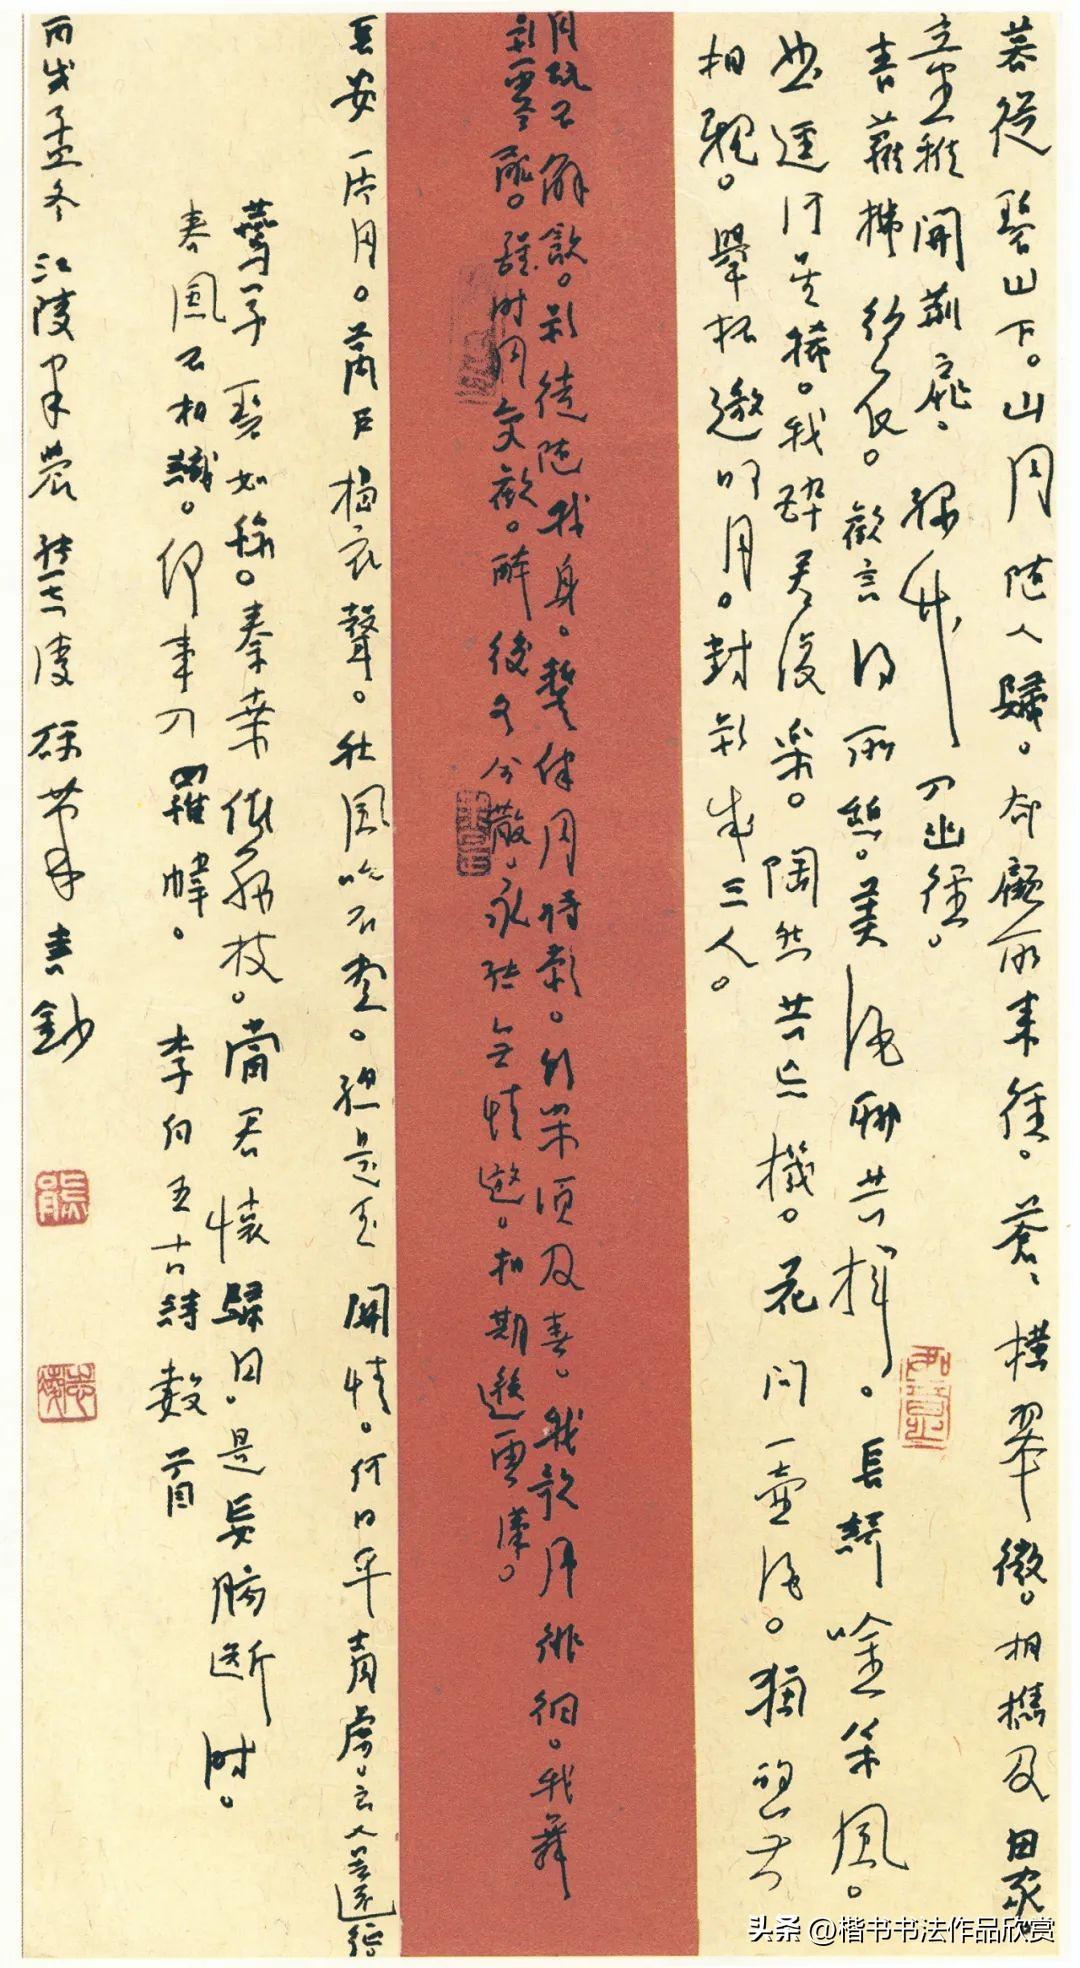 暮從碧山下。山月隨人歸。却顧所来徑。蒼〻橫翠微。相攜及田家。
童稚開荊扉。綠竹入幽徑。
青蘿拂行衣。歡言得所憩。美酒聊共揮。長歌吟松風。
曲河星稀。我醉君復樂。陶然共忘機。花間一壺酒。獨酌無
相親。舉杯邀明月。對影成三人。
月既不解飲。影徒隨我身。暫伴月將影。行樂須及春。我歌月徘徊。我舞
影零亂。醒時同交歡。醉後各分散。永結無情遊。相期邈雲漢。
長安一片月。萬戶擣衣聲。秋風吹不盡。總是玉關情。何日平胡虜。良人罷遠征
燕草碧如絲。秦桑低綠枝。當君懷歸日。是妾腸斷時。
春風不相識。何事入羅幃。李白五古詩數首
丙戌孟冬江陵聿農熊志凌書鈔
頭条 @楷书书法作品欣赏